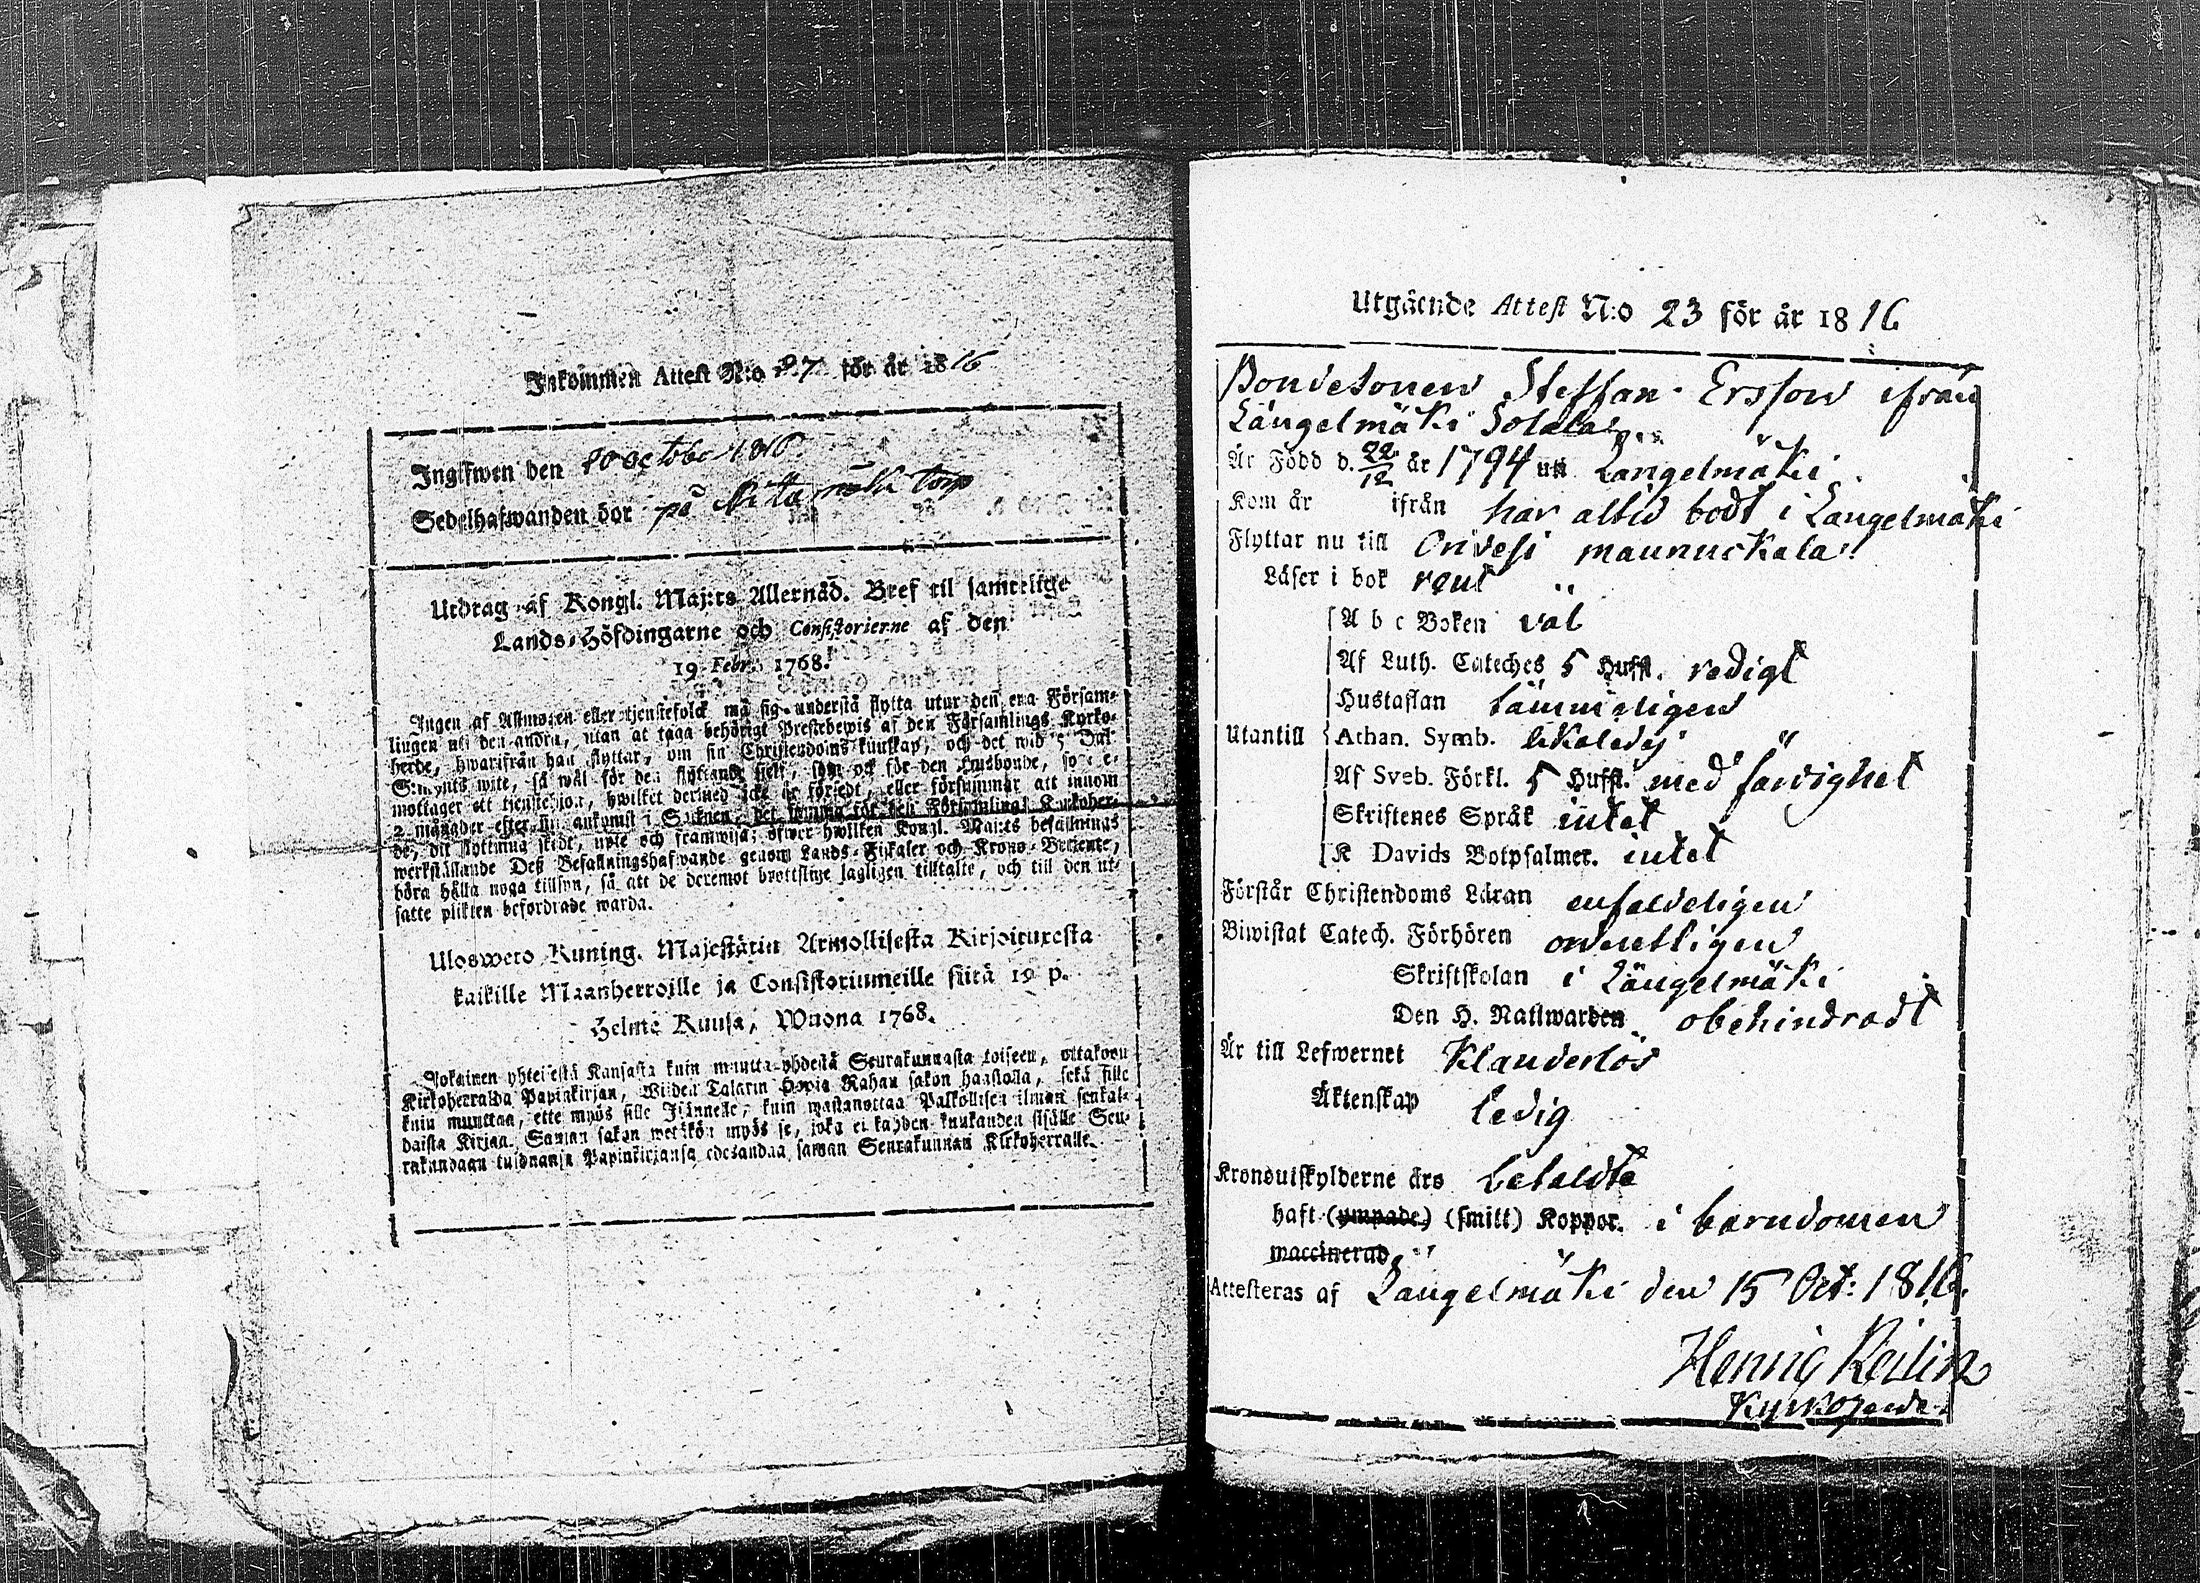 Inkommen Attest N:o 27 för år 1816
Ingifwen den October
Sedelhafwanden bor på torp
Utdrag af Kongl. Maj:ts Allernåd. Bref til samtelige
Lands-Höfdingarne och Consistorierne af den
19 Febr. 1768.
Ingen af Allmogen eller tjenstefolck må sig understå flytta utur den ena Försam-
lingen uti den andra, utan at taga behörigt Prestebewis af den Församlings Kyrko-
herde, hwarifrån han flyttar, om sin Christendoms kunskap, och det wid 5 Dal.
S:mynts wite, så wäl för den flyttande sielf, som ock för den Husbonde, som e-
mottager ett tjenstehjon, hwilket dermed icke är försedt, eller försummar att innom
2 månader efter sin ankomst i Socknen, det samma för den Församlings Kyrkoher-
de, dit flyttning skedt, upte och framwisa; öfwer hwilken Kongl. Maj:ts befallnings
werkställande Deß Befallningshafwande genom Lands-Fiskaler och Krono-Betiente,
böra hålla noga tillsyn, så att de deremot brottslige lagligen tilltalte, och till den ut-
satte plikten befordrade warda.
Uloswero Kuning. Majestätin Armollisesta Kirjoituxesta
kaikille Maanherroille ja Consistoriumeille siitä 19 p.
Helme Kuusa, Wuona 1768.
Jokainen yhteisestä Kansasta kuin muutta yhdestä Seurakunnasta toiseen, ottakoon
Kirkoherralda Papinkirjan, Wijden Talarin Hopia Rahan sakon haastolla, sekä sille
kuin muuttaa, ette myös sille Isännelle, kuin wastanottaa Palkollisen ilman senkal-
daista Kirjaa. Saman sakon wetäkön myös se, joka ei kahden kuukauden sisälle Seu-
rakundaan tuldnansa Papinkirjansa edesandaa saman Seurakunnan Kirkoherralle.
Utgående Attest N:o 23 för år 1816
Bondesonen Steffan Ersson ifrån
Längelmäki
Är Född d. 22/12 år 1794 uti Längelmäki
Kom år ifrån har altid bodt i Längelmäki
Flyttar nu till Orivesi maunuckala
Läser i bok rent
A b c Boken väl
Af Luth. Cateches 5 Huffst. redigt
Hustaflan tämmeligen
Utantill Athan. Symb. likaledes
Af Sveb. Förkl. 5 Huffst. med färdighet
Skriftenes Språk intet
K Davids Botpsalmer. intet
Förstår Christendoms Läran enfaldeligen
Biwistat Catech. Förhören ordentligen
Skriftskolan i Längelmäki
Den H. Nattwarden obehindradt
Är till Lefwernet klanderlös
Äktenskap ledig
Kronoutskylderne äro betaldte
haft (ympade) (smitt) Koppor. i barndomen
waccinerad
Attesteras af Längelmäki den 15 Oct: 1816.
Henric Keilin
Kyrkoherde